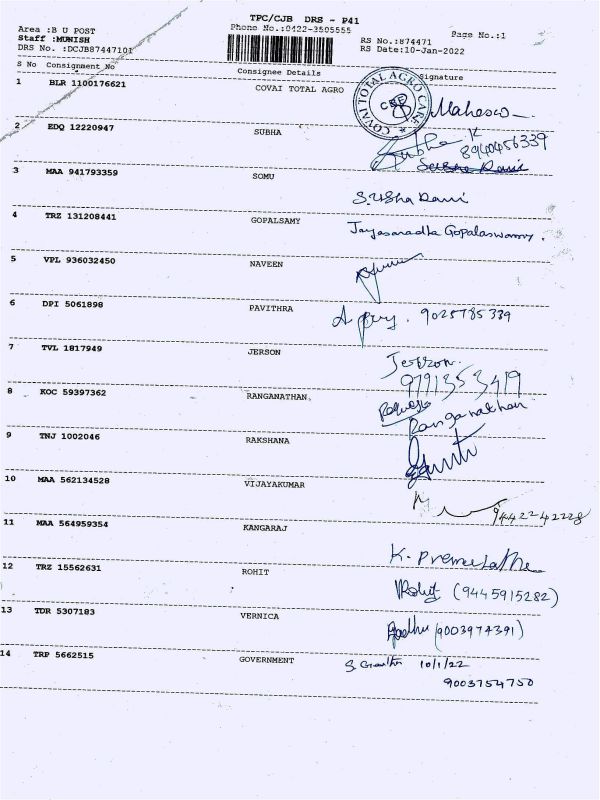 TPC/CJB DRS - P41
Area :B U POST Phone No.:0422-3505555 Page No.:1
Staff :MUNISH RS No.:874471
DRS No. :DCJB87447101 RS Date:10-Jan-2022
S No Consignment No Consignee Details Signature
1 BLR 1100176621 COVAI TOTAL AGRO
COVAI TOTAL AGRO CARE
CBE
2 EDQ 12220947 SUBHA
Subha K
8940456339
3 MAA 941793359 SOMU
S. Usha Rani
4 TRZ 131208441 GOPALSAMY Jayasaradha Gopalaswamy.
5 VPL 936032450 NAVEEN
6 DPI 5061898 PAVITHRA 9025785339
7 TVL 1817949 JERSON Jerson.
9791353419
8 KOC 59397362 RANGANATHAN.
Ranganathan
9 TNJ 1002046 RAKSHANA
10 MAA 562134528 VIJAYAKUMAR
9442242228
11 MAA 564959354 KANGARAJ
K. Premalatha
12 TRZ 15562631 ROHIT
Rohit (9445915282)
13 TDR 5307183 VERNICA
(9003974391)
14 TRP 5662515 GOVERNMENT 10/1/22
9003754750